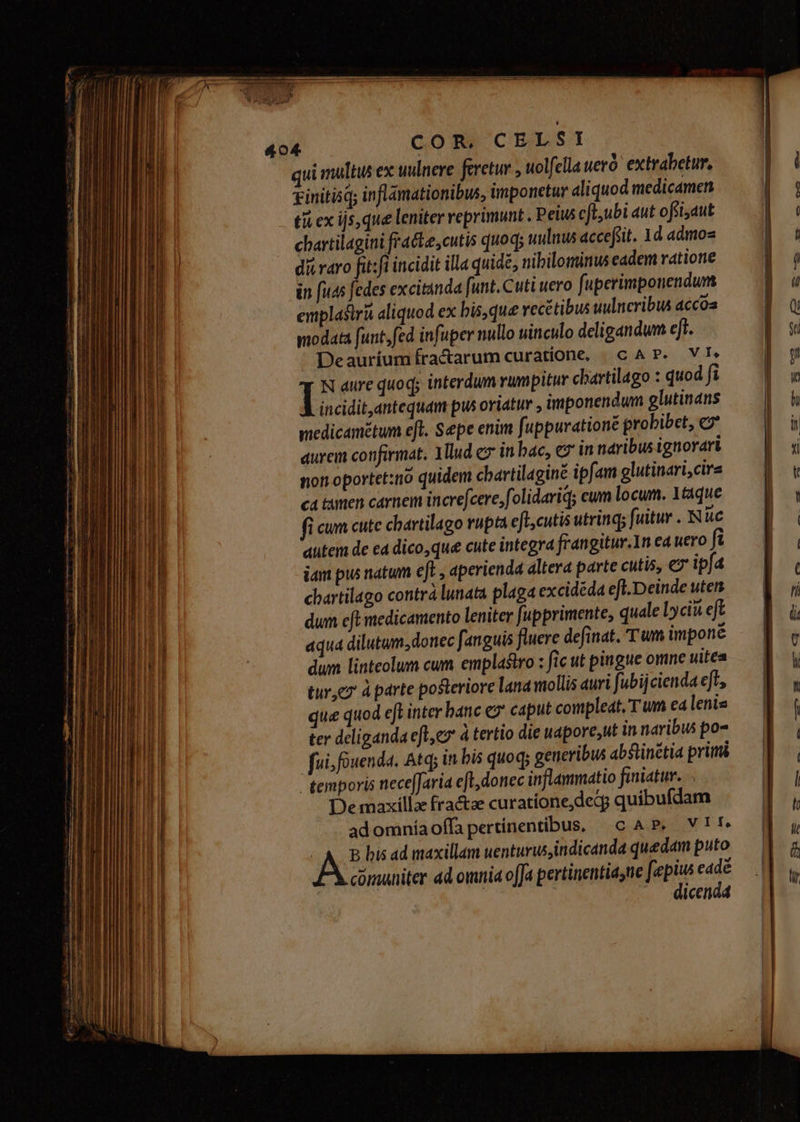 404 COR. CELSI
qui multus ex uulnere feretur, uolſella uerò extrahetur.
Finitisq; inflãmationibus, imponetur aliquod medicamen
tũ ex ijs, quæ leniter reprimunt. Peius eſt, ubi aut oßi, aut
chartilagini fractæ, cutis quoq; uulnus acceßit. Id admo=
dũ raro fit: ſi incidit illa quidẽ, nihilominus eadem ratione
in ſuas ſedes excitanda ſunt. Cuti uero ſuperimponendum
emplaſtrũ aliquod ex his, quæ recẽtibus uulneribus accõ=
modata ſunt, ſed inſuper nullo uinculo deligandum eſt.
De aurium fractarum curatione. CAP. VI.
IN aure quoq; interdum rumpitur chartilago: quod ſi
incidit, antequam pus oriatur, imponendum glutinans
medicamẽtum eſt. Sæpe enim ſuppurationẽ prohibet, &
aurem confirmat. Illud & in hac, & in naribus ignorari
non oportet: nõ quidem chartilaginẽ ipſam glutinari, cir=
ca tamen carnem increſcere, ſolidariq; eum locum. Itaque
ſi cum cute chartilago rupta eſt, cutis utrinq; ſuitur. Nũc
autem de ea dico, quæ cute integra frangitur. In ea uero ſi
iam pus natum eſt, aperienda altera parte cutis, & ipſa
chartilago contrà lunata plaga excidẽda eſt. Deinde uten
dum eſt medicamento leniter ſupprimente, quale lyciũ eſt
aqua dilutum, donec ſanguis fluere deſinat. Tum imponẽ
dum linteolum cum emplaſtro: ſic ut pingue omne uitea
tur, & à parte poſteriore lana mollis auri ſubijcienda eſt,
quæ quod eſt inter hanc & caput compleat. Tum ea leni=
ter deliganda eſt, & à tertio die uapore, ut in naribus po=
ſui, fouenda. Atq; in his quoq; generibus abſtinẽtia primi
temporis neceſſaria eſt, donec inflammatio finiatur.
De maxillæ fractæ curatione, deq; quibuſdam
ad omnia oſſa pertinentibus. CAP. VII.
AB his ad maxillam uenturus, indicanda quædam puto
cõmuniter ad omnia oſſa pertinentia, ne ſæpius eadẽ
dicenda